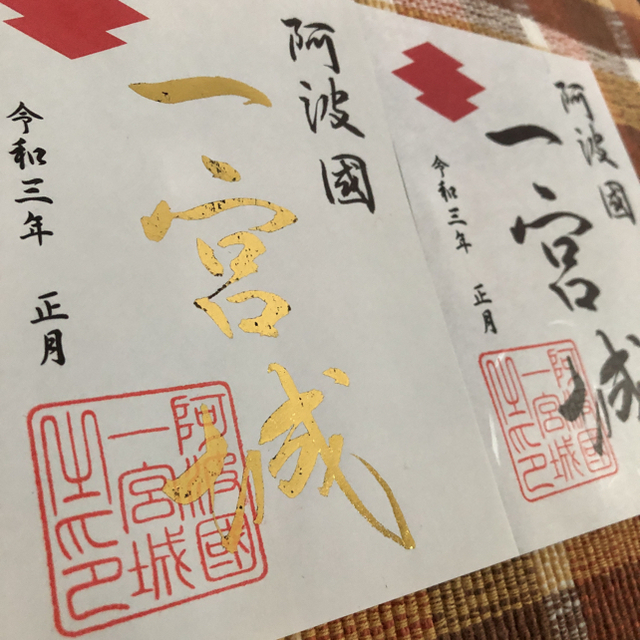 阿波國
一宮城
令和三年 正月
阿波國
一宮城
之印
阿波國
一宮城
令和三年 正月
阿波國
一宮城
之印